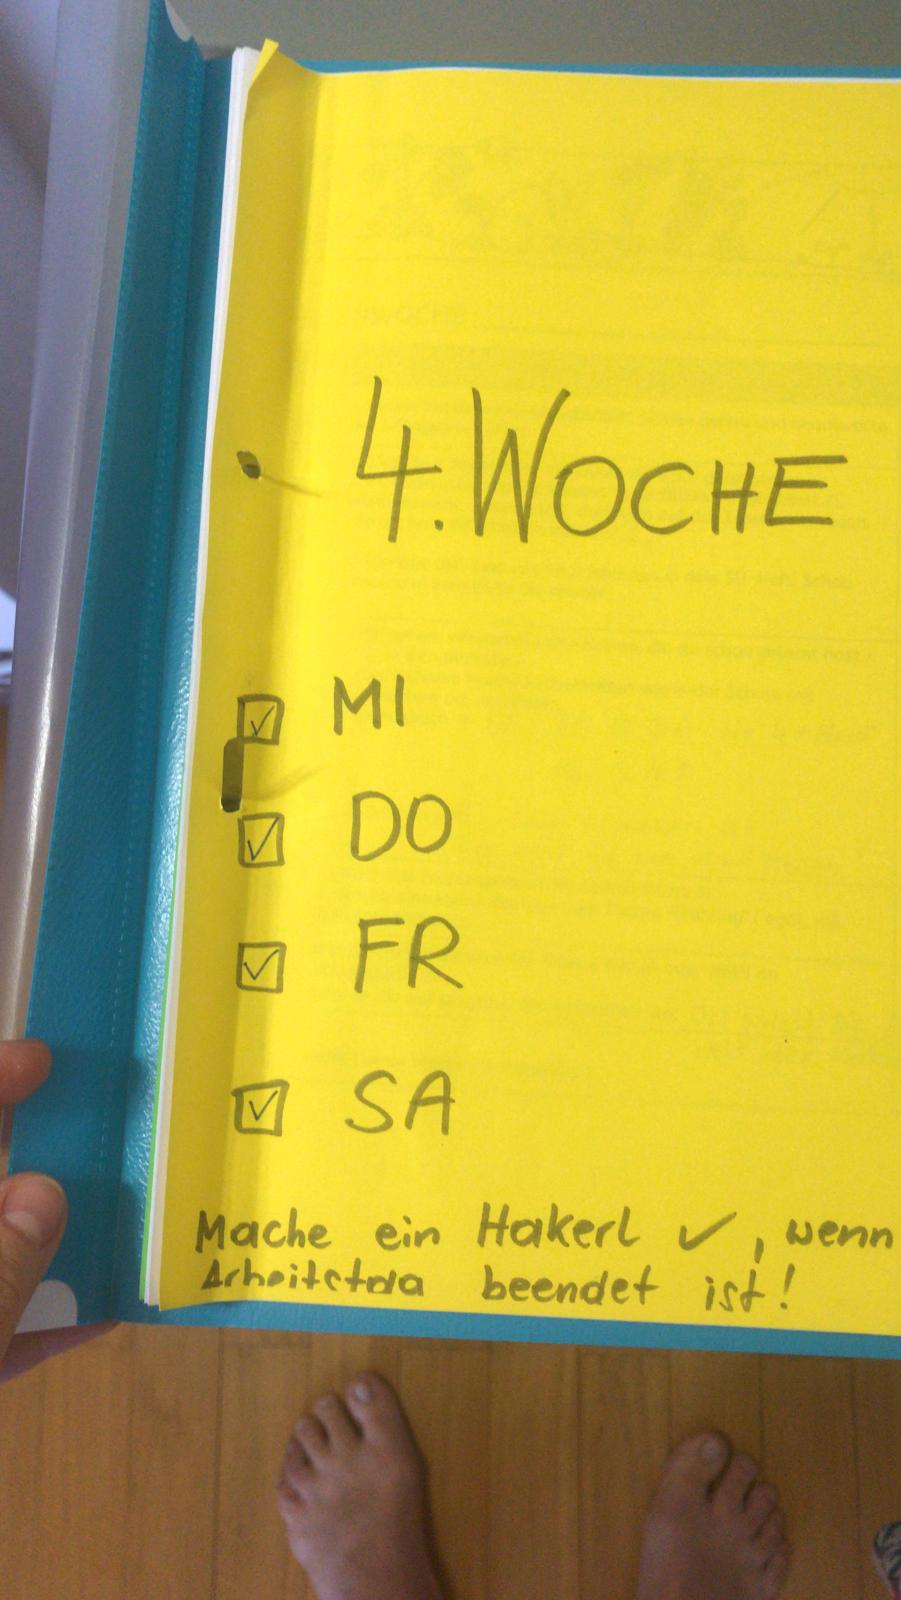 4. WOCHE
☑ MI
☑ DO
☑ FR
☑ SA
Mache ein Hakerl ✓, wenn
Arbeitstag beendet ist!